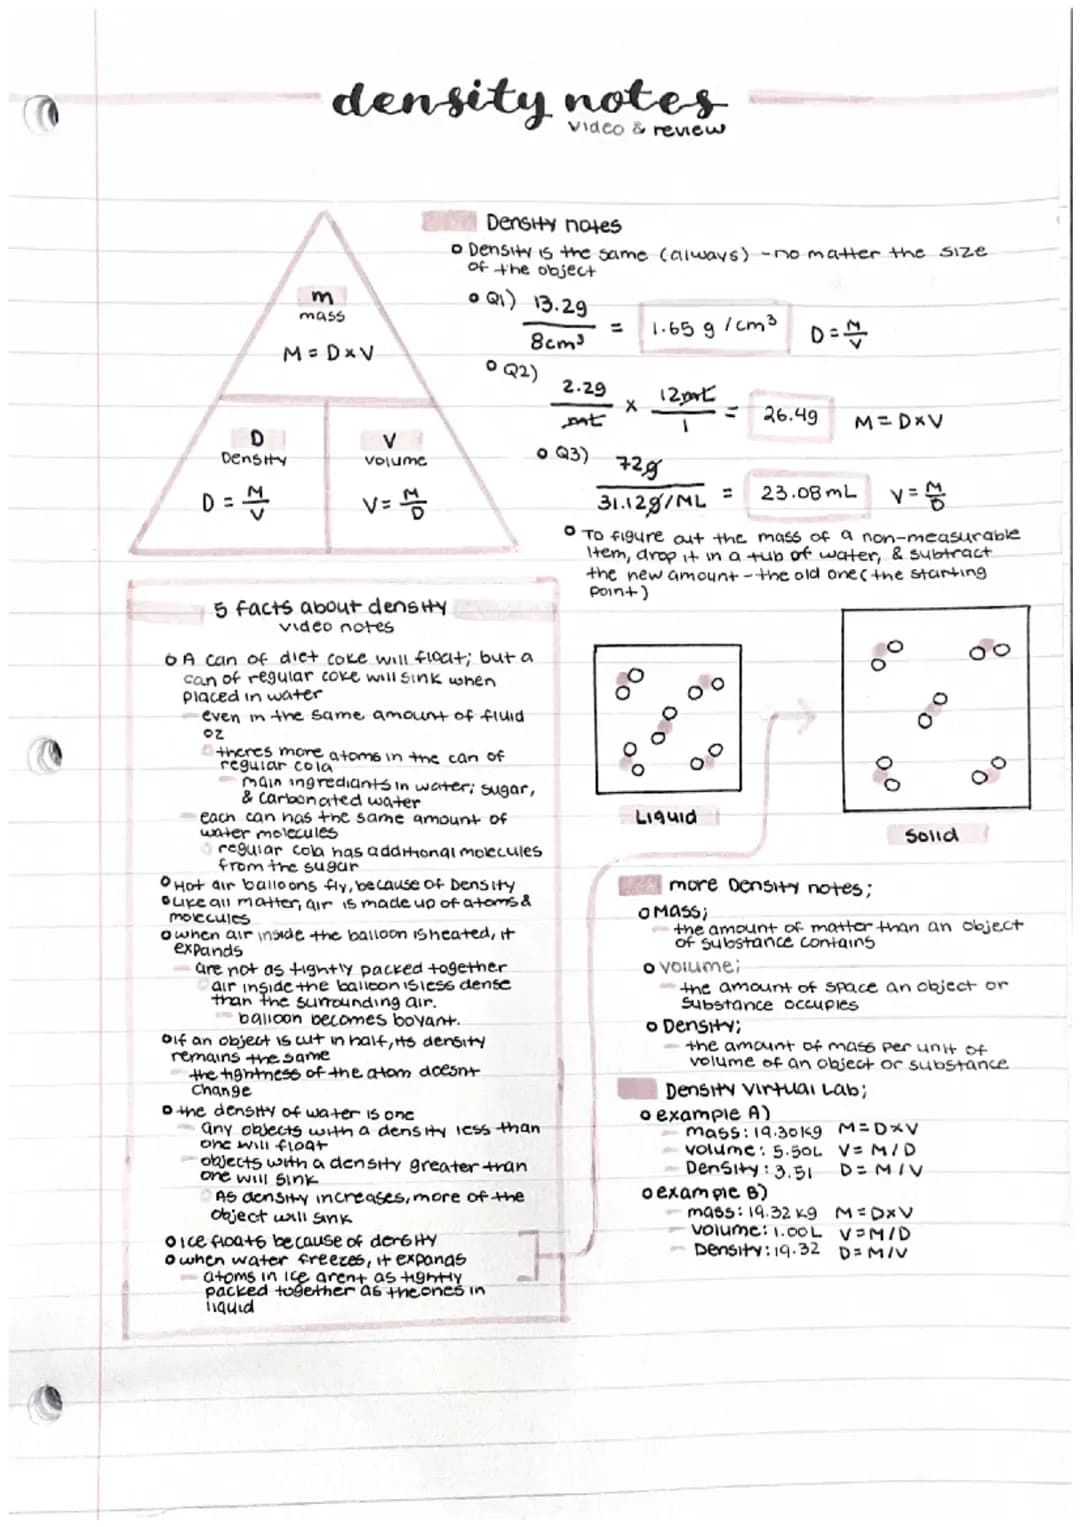 density notes
video & review
m
mass
M = D x V
D
Density
D = M/V
V
volume
V = M/D
Density notes
Density is the same (always) - no matter the size
of the object
Q1) 13.2g / 8cm³ = 1.65 g/cm³ D = M/V
Q2) 2.2g / mL x 12mL / 1 = 26.4g M = D x V
Q3) 72g / 31.12g/ML = 23.08mL V = M/D
To figure out the mass of a non-measurable
item, drop it in a tub of water, & subtract
the new amount - the old one (the starting
point)
5 facts about density
video notes
A can of diet coke will float; but a
can of regular coke will sink when
placed in water
even in the same amount of fluid
oz
theres more atoms in the can of
regular cola
main ingrediants in water; sugar,
& carbonated water
each can has the same amount of
water molecules
regular cola has additional molecules
from the sugar
Hot air balloons fly, because of Density
Like all matter, air is made up of atoms &
molecules
when air inside the balloon is heated, it
expands
are not as tightly packed together
air inside the balloon is less dense
than the surrounding air.
balloon becomes boyant.
If an object is cut in half, its density
remains the same
the tightness of the atom doesnt
change
the density of water is one
any objects with a density less than
one will float
objects with a density greater tran
one will sink
As density increases, more of the
object will sink
Ice floats because of density
when water freezes, it expands
atoms in ice arent as tightly
packed together as the ones in
liquid
Liquid
Solid
more Density notes;
Mass;
the amount of matter than an object
of substance contains
volume;
the amount of space an object or
substance occupies
Density;
the amount of mass per unit of
volume of an object or substance
Density Virtual Lab;
example A)
mass: 19.30kg M = D x V
volume: 5.50L V = M/D
Density: 3.51 D = M/V
example B)
mass: 19.32 kg M = D x V
volume: 1.00L V = M/D
Density: 19.32 D = M/V